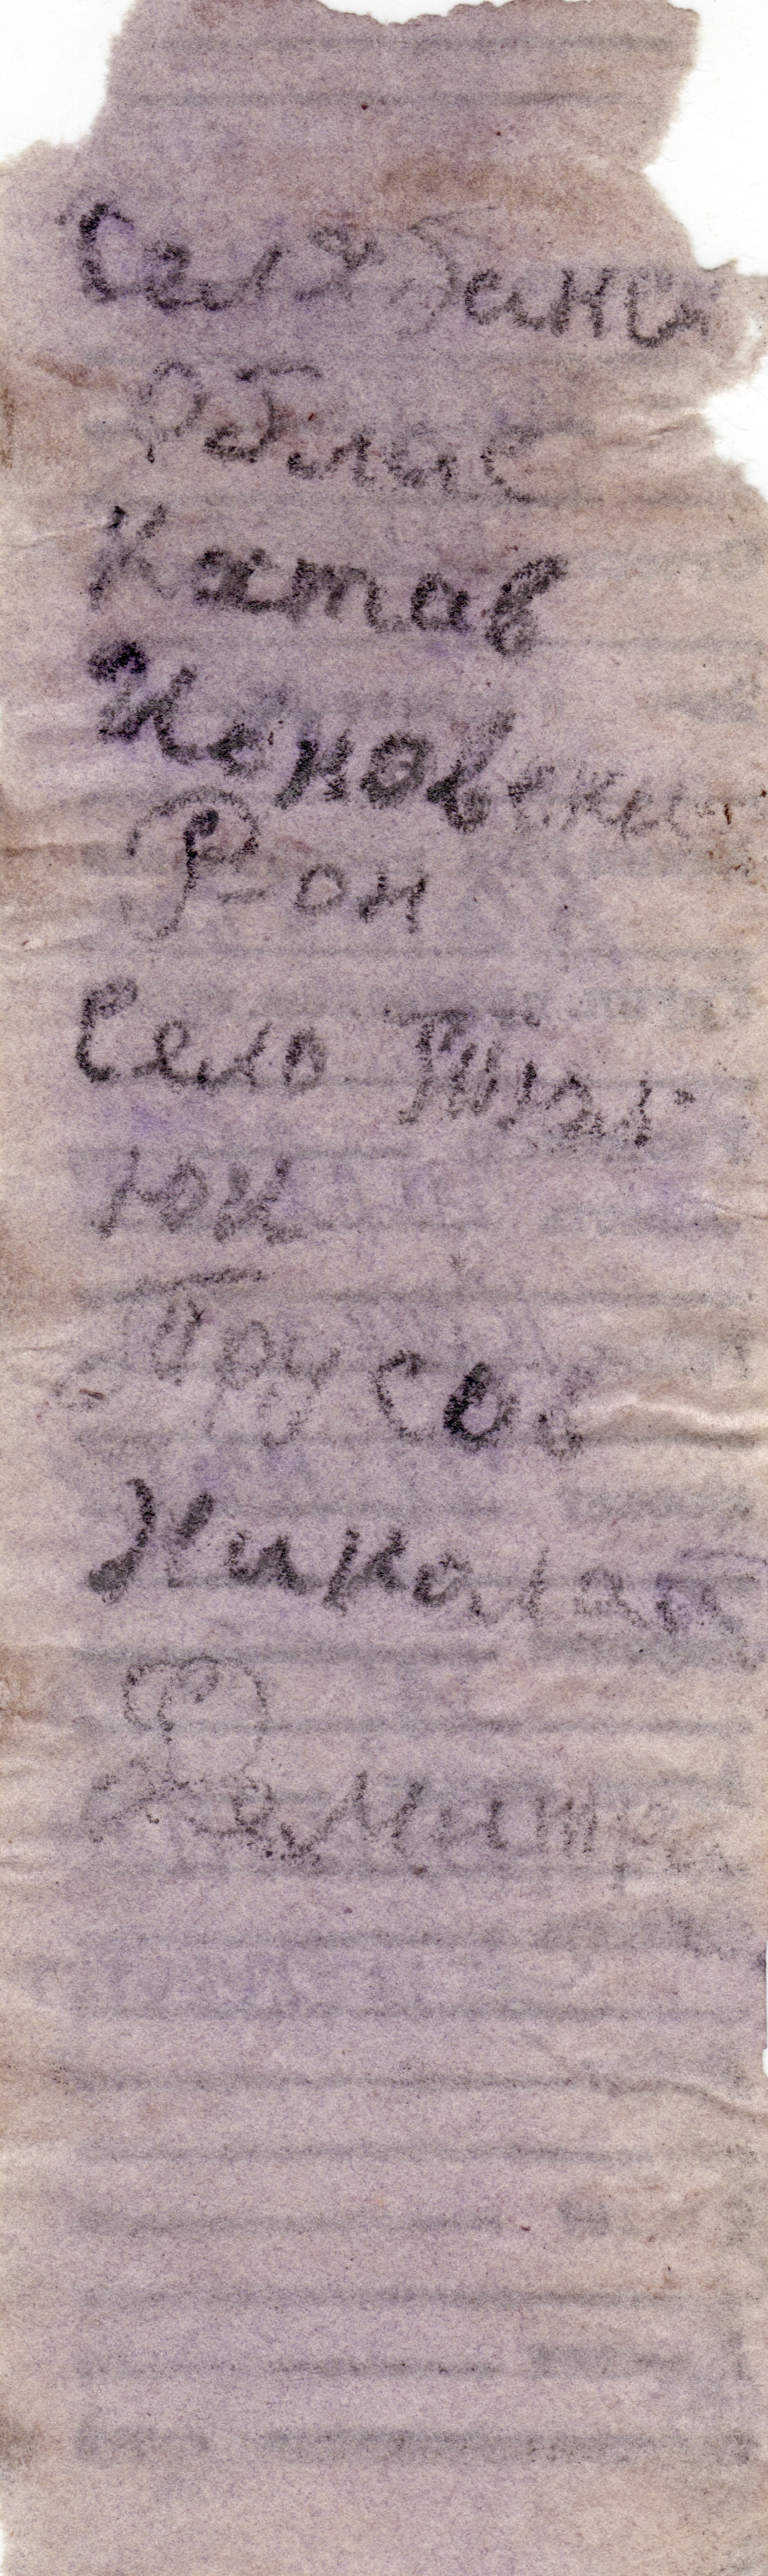 Селябинск
Облас
Катав
Ивановски
Рон
Село Тюл
юк
Трусов
Николай
Дмитри